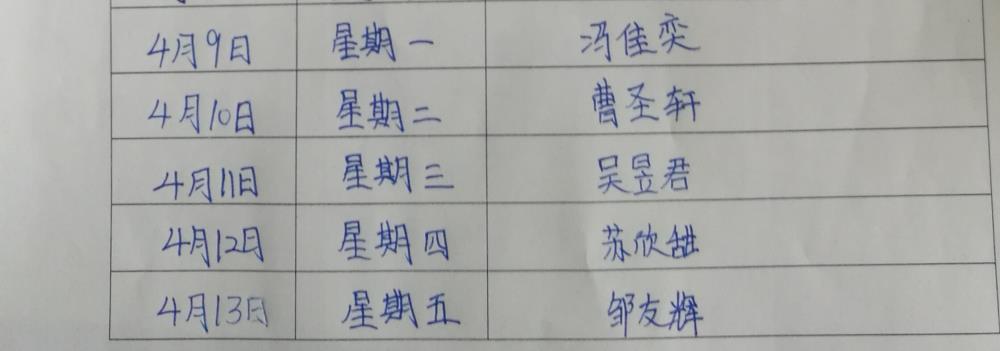 4月9日 星期一 冯佳奕
4月10日 星期二 曹圣轩
4月11日 星期三 吴昱君
4月12日 星期四 苏欣甜
4月13日 星期五 邹友辉